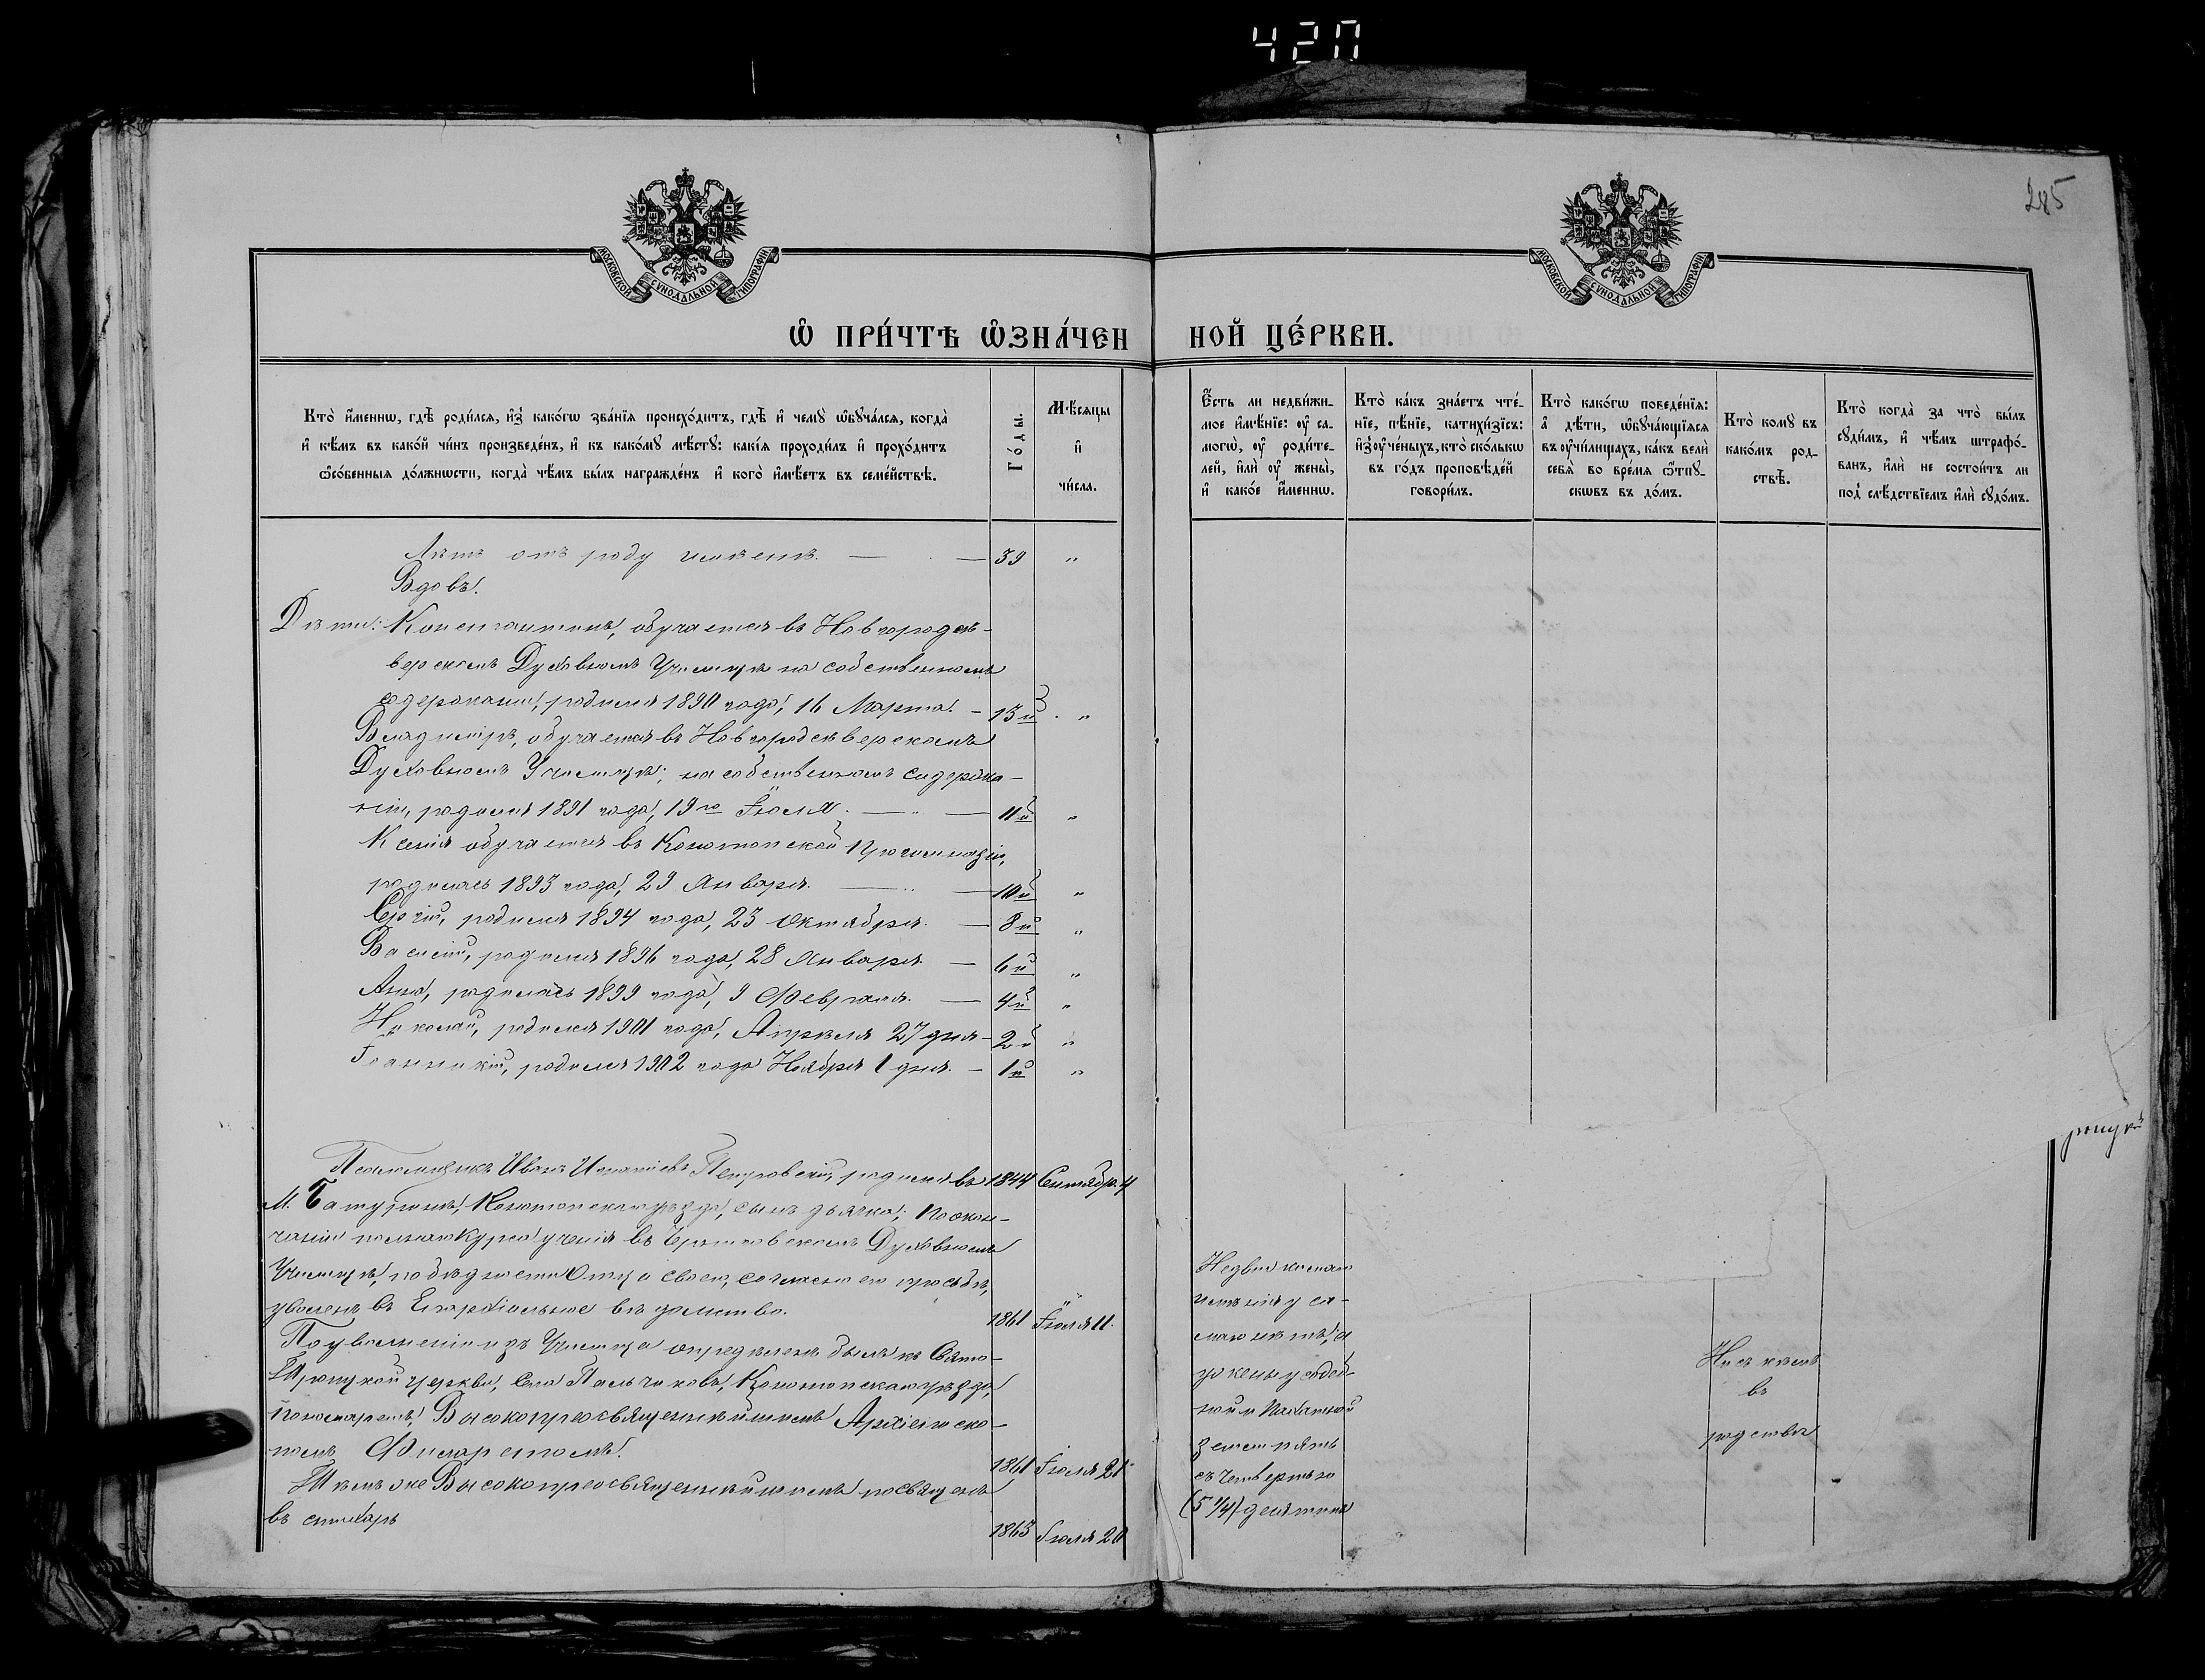 420
285
МОСКОВСКОЙ СѴНОДАЛЬНОЙ ТИПОГРАФІИ
МОСКОВСКОЙ СѴНОДАЛЬНОЙ ТИПОГРАФІИ
Ѡ ПРИ́ЧТѢ ѠЗНА́ЧЕННОЙ ЦЕ́РКВИ.
Кто̀ и҆́меннѡ, гдѣ̀ роди́лся, и҆з̾ како́гѡ зва́нїя происхо́дитъ, гдѣ̀ и҆ чемꙋ̀ ѡ҆бꙋча́лся, когда̀
и҆ кѣ́мъ въ како́й чи́нъ произведе́нъ, и҆ къ како́мꙋ мѣ́стꙋ: какі́я проходи́лъ и҆ прохо́дитъ
ѻ҆со́бенныя до́лжнѡсти, когда̀ чѣ́мъ бы́лъ награжде́нъ и҆ кого̀ и҆мѣ́етъ въ семе́йствѣ.
Го́ды.
Мѣ́сяцы
и҆
чи́сла.
Є҆́сть ли недви́жи-
мое и҆мѣ́нїе: ᲂу҆ са-
могѡ̀, ᲂу҆ роди́те-
лей, и҆лѝ ᲂу҆ жены̀,
и҆ како́е и҆́меннѡ.
Кто̀ ка́къ зна́етъ чте́-
нїе, пѣ́нїе, катихи́зїсъ:
и҆з̾ ᲂу҆че́ныхъ, кто̀ ско́лькѡ
въ го́дъ проповѣ́дей
говори́лъ.
Кто̀ како́гѡ поведе́нїя:
а҆ дѣ́ти, ѡ҆бꙋча́ющїяся
въ ᲂу҆чи́лищахъ, ка́къ велѝ
себѧ̀ во вре́мя ѿпꙋ-
скѡвъ въ до́мъ.
Кто̀ комꙋ̀ въ
како́мъ род-
ствѣ̀.
Кто̀ когда̀ за что̀ бы́лъ
сꙋди́мъ, и҆ чѣ́мъ штрафо́-
ванъ, и҆лѝ не состои́тъ ли
под̾ слѣ́дствїемъ и҆лѝ сꙋдо́мъ.
Лѣтъ отъ роду имѣетъ. — 39 "
Вдовъ.
Дѣти: Константинъ, обучается въ Новгородсѣ-
верскомъ Духовномъ Училищѣ на собственномъ
содержаніи, родился 1890 года, 16 Марта. — 13й "
Владиміръ, обучается въ Новгородсѣверскомъ
Духовномъ Училищѣ, на собственномъ содержа-
ніи, родился 1891 года, 19го Іюля. — 11й "
Ксенія обучается въ Конотопской Прогимназіи,
родилась 1893 года, 29 Января. — 10й "
Сергій, родился 1894 года, 23 Октября. — 8й "
Василій, родился 1896 года, 28 Января — 6й "
Анна, родилась 1899 года, 9 Февраля. — 4й "
Николай, родился 1901 года, Апрѣля 27 дня — 2й "
Іоанникій, родился 1902 года Ноября 1 дня. — 1й "
Псаломщикъ Иванъ Игнатіевъ Петровскій, родился въ 1844 Сентябр. 4
М. Батуринѣ, Конотопскаго уѣзда, сынъ дьячка; по окон-
чаніи полнаго курса ученія въ Черниговскомъ Духовномъ
Училищѣ, по бѣдности Отца своего, согласно его просьбѣ,
уволенъ въ Епархіальное вѣдомство. 1861 Іюля 11.
По увольненіи изъ Училища опредѣленъ былъ къ Свято-
Троицкой церкви, села Пальчиковъ, Конотопскаго уѣзда,
пономаремъ, Высокопреосвященнѣйшимъ Архіеписко-
помъ Филаретомъ. 1861 Іюля 21
Тѣмъ же Высокопреосвященнѣйшимъ посвященъ
въ стихарь 1863 Іюля 20
Недвижимаго
имѣнія у са-
маго нѣтъ, а
у жены усадеб-
ной и пахатной
земли пять
съ четвертью
(5 1/4) десятинъ
Ни съ кѣмъ
въ
родствѣ